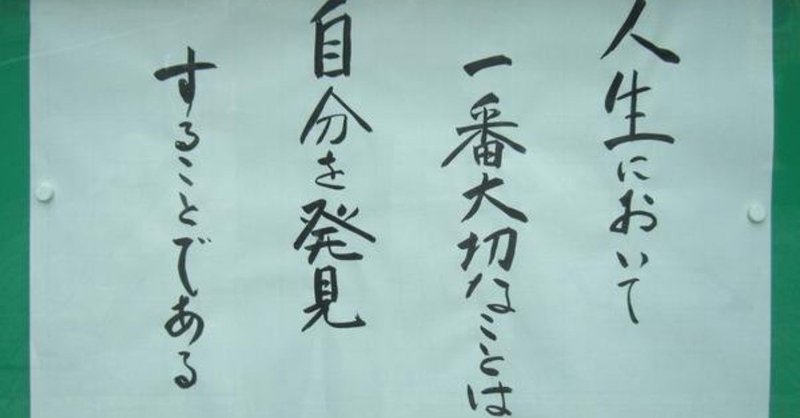 人生において
一番大切なことは
自分を発見
することである